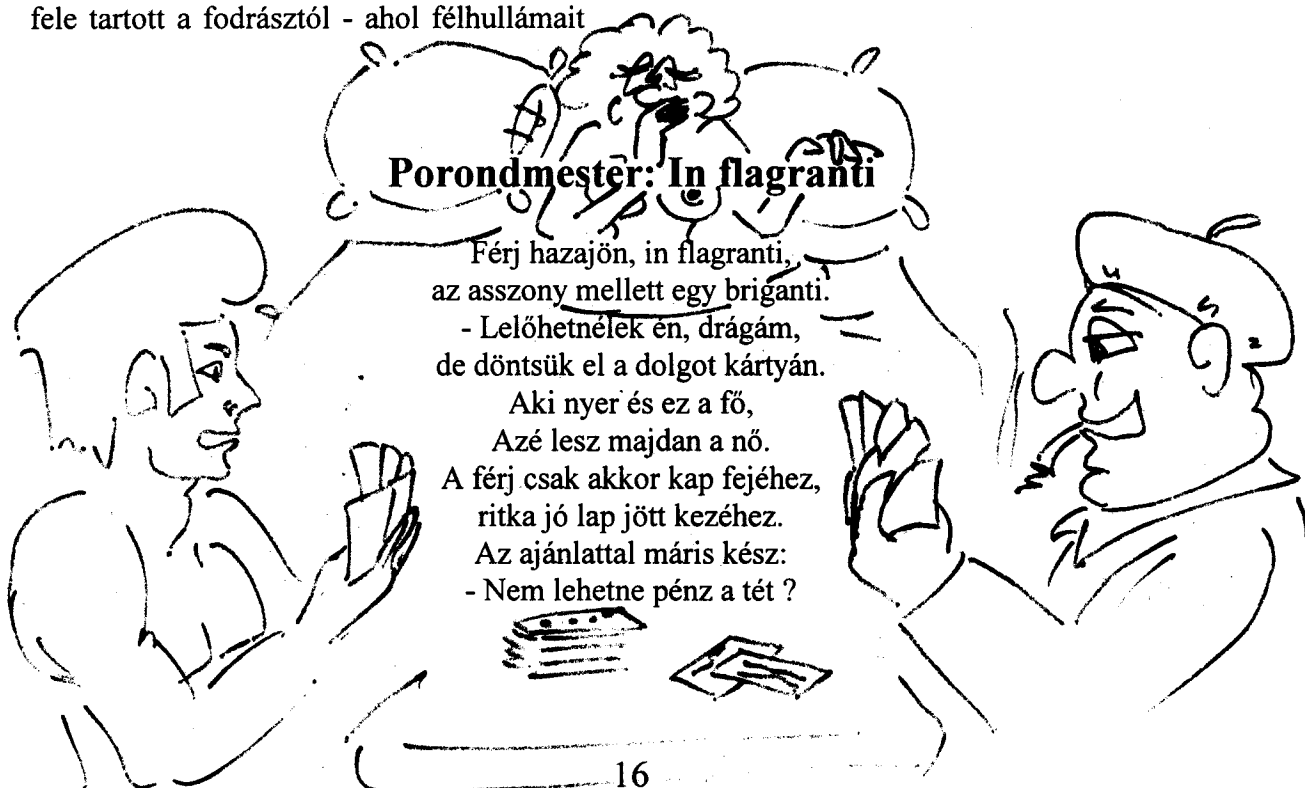 fele tartott a fodrásztól - ahol félhullámait
Porondmester: In flagranti
Férj hazajön, in flagranti,
az asszony mellett egy briganti.
- Lelőhetnélek én, drágám,
de döntsük el a dolgot kártyán.
Aki nyer és ez a fő,
Azé lesz majdan a nő.
A férj csak akkor kap fejéhez,
ritka jó lap jött kezéhez.
Az ajánlattal máris kész:
- Nem lehetne pénz a tét ?
16